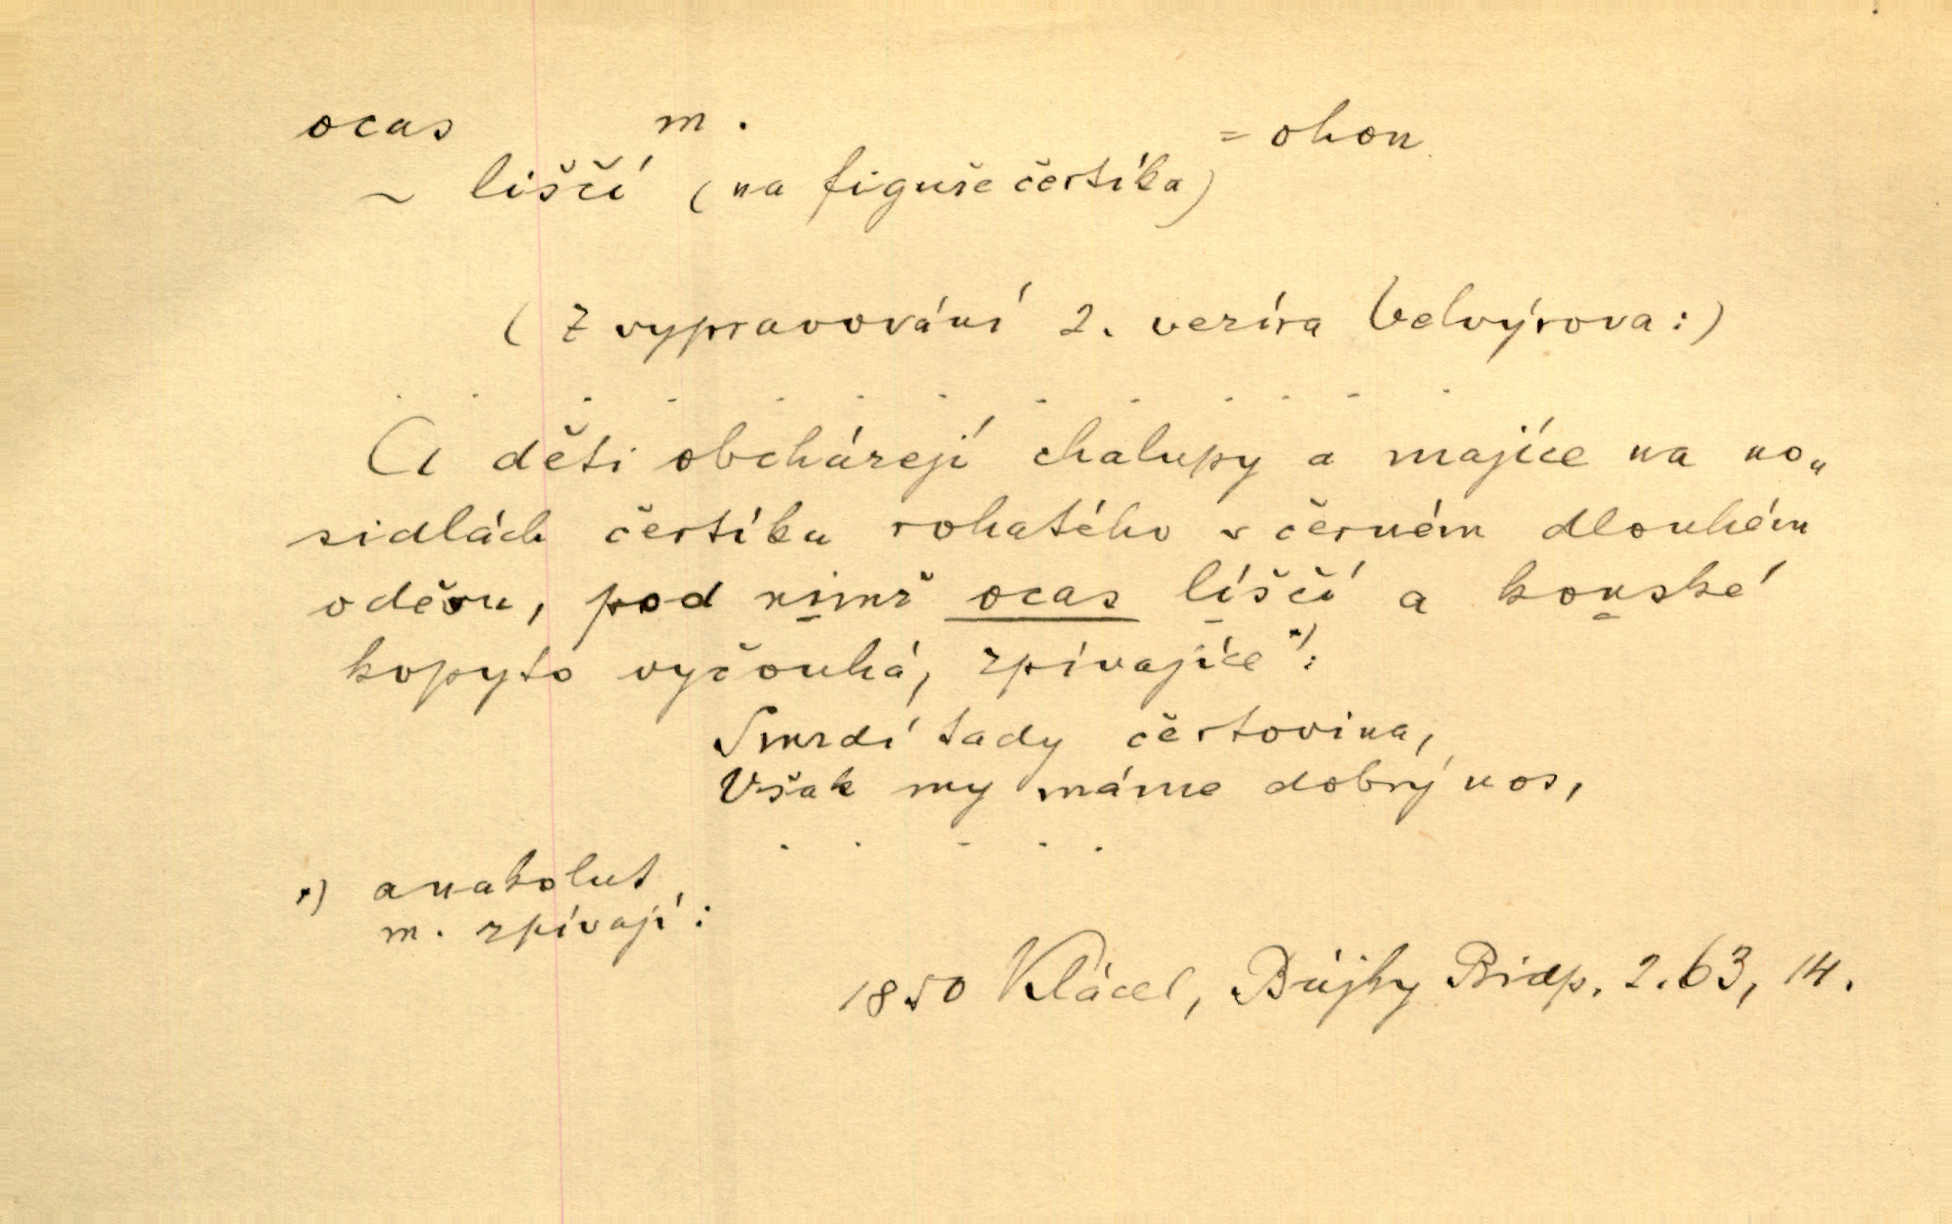 ocas m. = ohon
~ liščí (na figuře čertíka)
(Z vypravování 2. vezíra Velvýrova:)
. . . . . . . . . . . . .
A děti obcházejí chalupy a majíce na no„
sidlách čertíka rohatého v černém dlouhém
oděvu, pod nimž ocas líščí a konské
kopyto vyčouhá, zpívajíce*):
Smrdí tady čertovina,
Však my máme dobrý nos,
. . . . .
*) anakolut
m. zpívají:
1850 Klácel, Bájky Bidp. 2.63, 14.